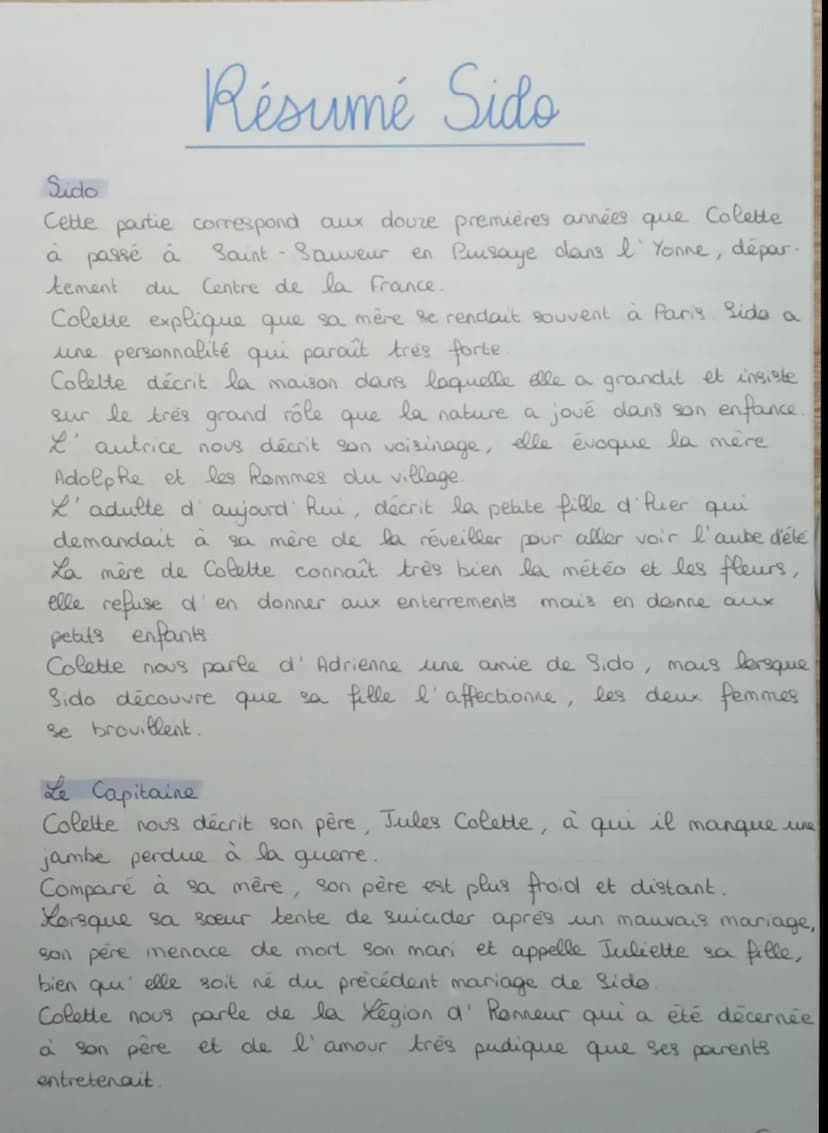 Résumé Sido
Sido
Cette partie correspond aux douze premières années que Colette
à passé à Saint-Sauveur en Puisaye dans l'Yonne, dépar-
tement du Centre de la France.
Colette explique que sa mère se rendait souvent à Paris Sido a
une personnalité qui paraît très forte.
Colette décrit la maison dans laquelle elle a grandit et insiste
sur le très grand rôle que la nature a joué dans son enfance.
L'autrice nous décrit son voisinage, elle évoque la mère
Adolphe et les hommes du village.
L'adulte d'aujourd'hui, décrit la petite fille d'hier qui
demandait à sa mère de la réveiller pour aller voir l'aube d'été
La mère de Colette connaît très bien la météo et les fleurs,
elle refuse d'en donner aux enterrements mais en donne aux
petits enfants
Colette nous parle d'Adrienne une amie de Sido, mais lorsque
Sido découvre que sa fille l'affectionne, les deux femmes
se brouillent.
Le Capitaine
Colette nous décrit son père, Jules Colette, à qui il manque une
jambe perdue à la guerre.
Comparé à sa mère, son père est plus froid et distant.
Lorsque sa sœur tente de suicider après un mauvais mariage,
son père menace de mort son mari et appelle Juliette sa fille,
bien qu'elle soit né du précédent mariage de Sido.
Colette nous parle de la Légion d'Honneur qui a été décernée
à son père et de l'amour très pudique que ses parents
entretenait.